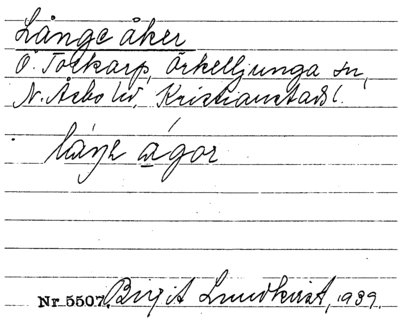 Långe åker
Ö. Torkarp, Örkelljunga sn,
N. Åsbo hd, Kristianstads l.
Nr 5507. Birgit Lundkvist, 1939.